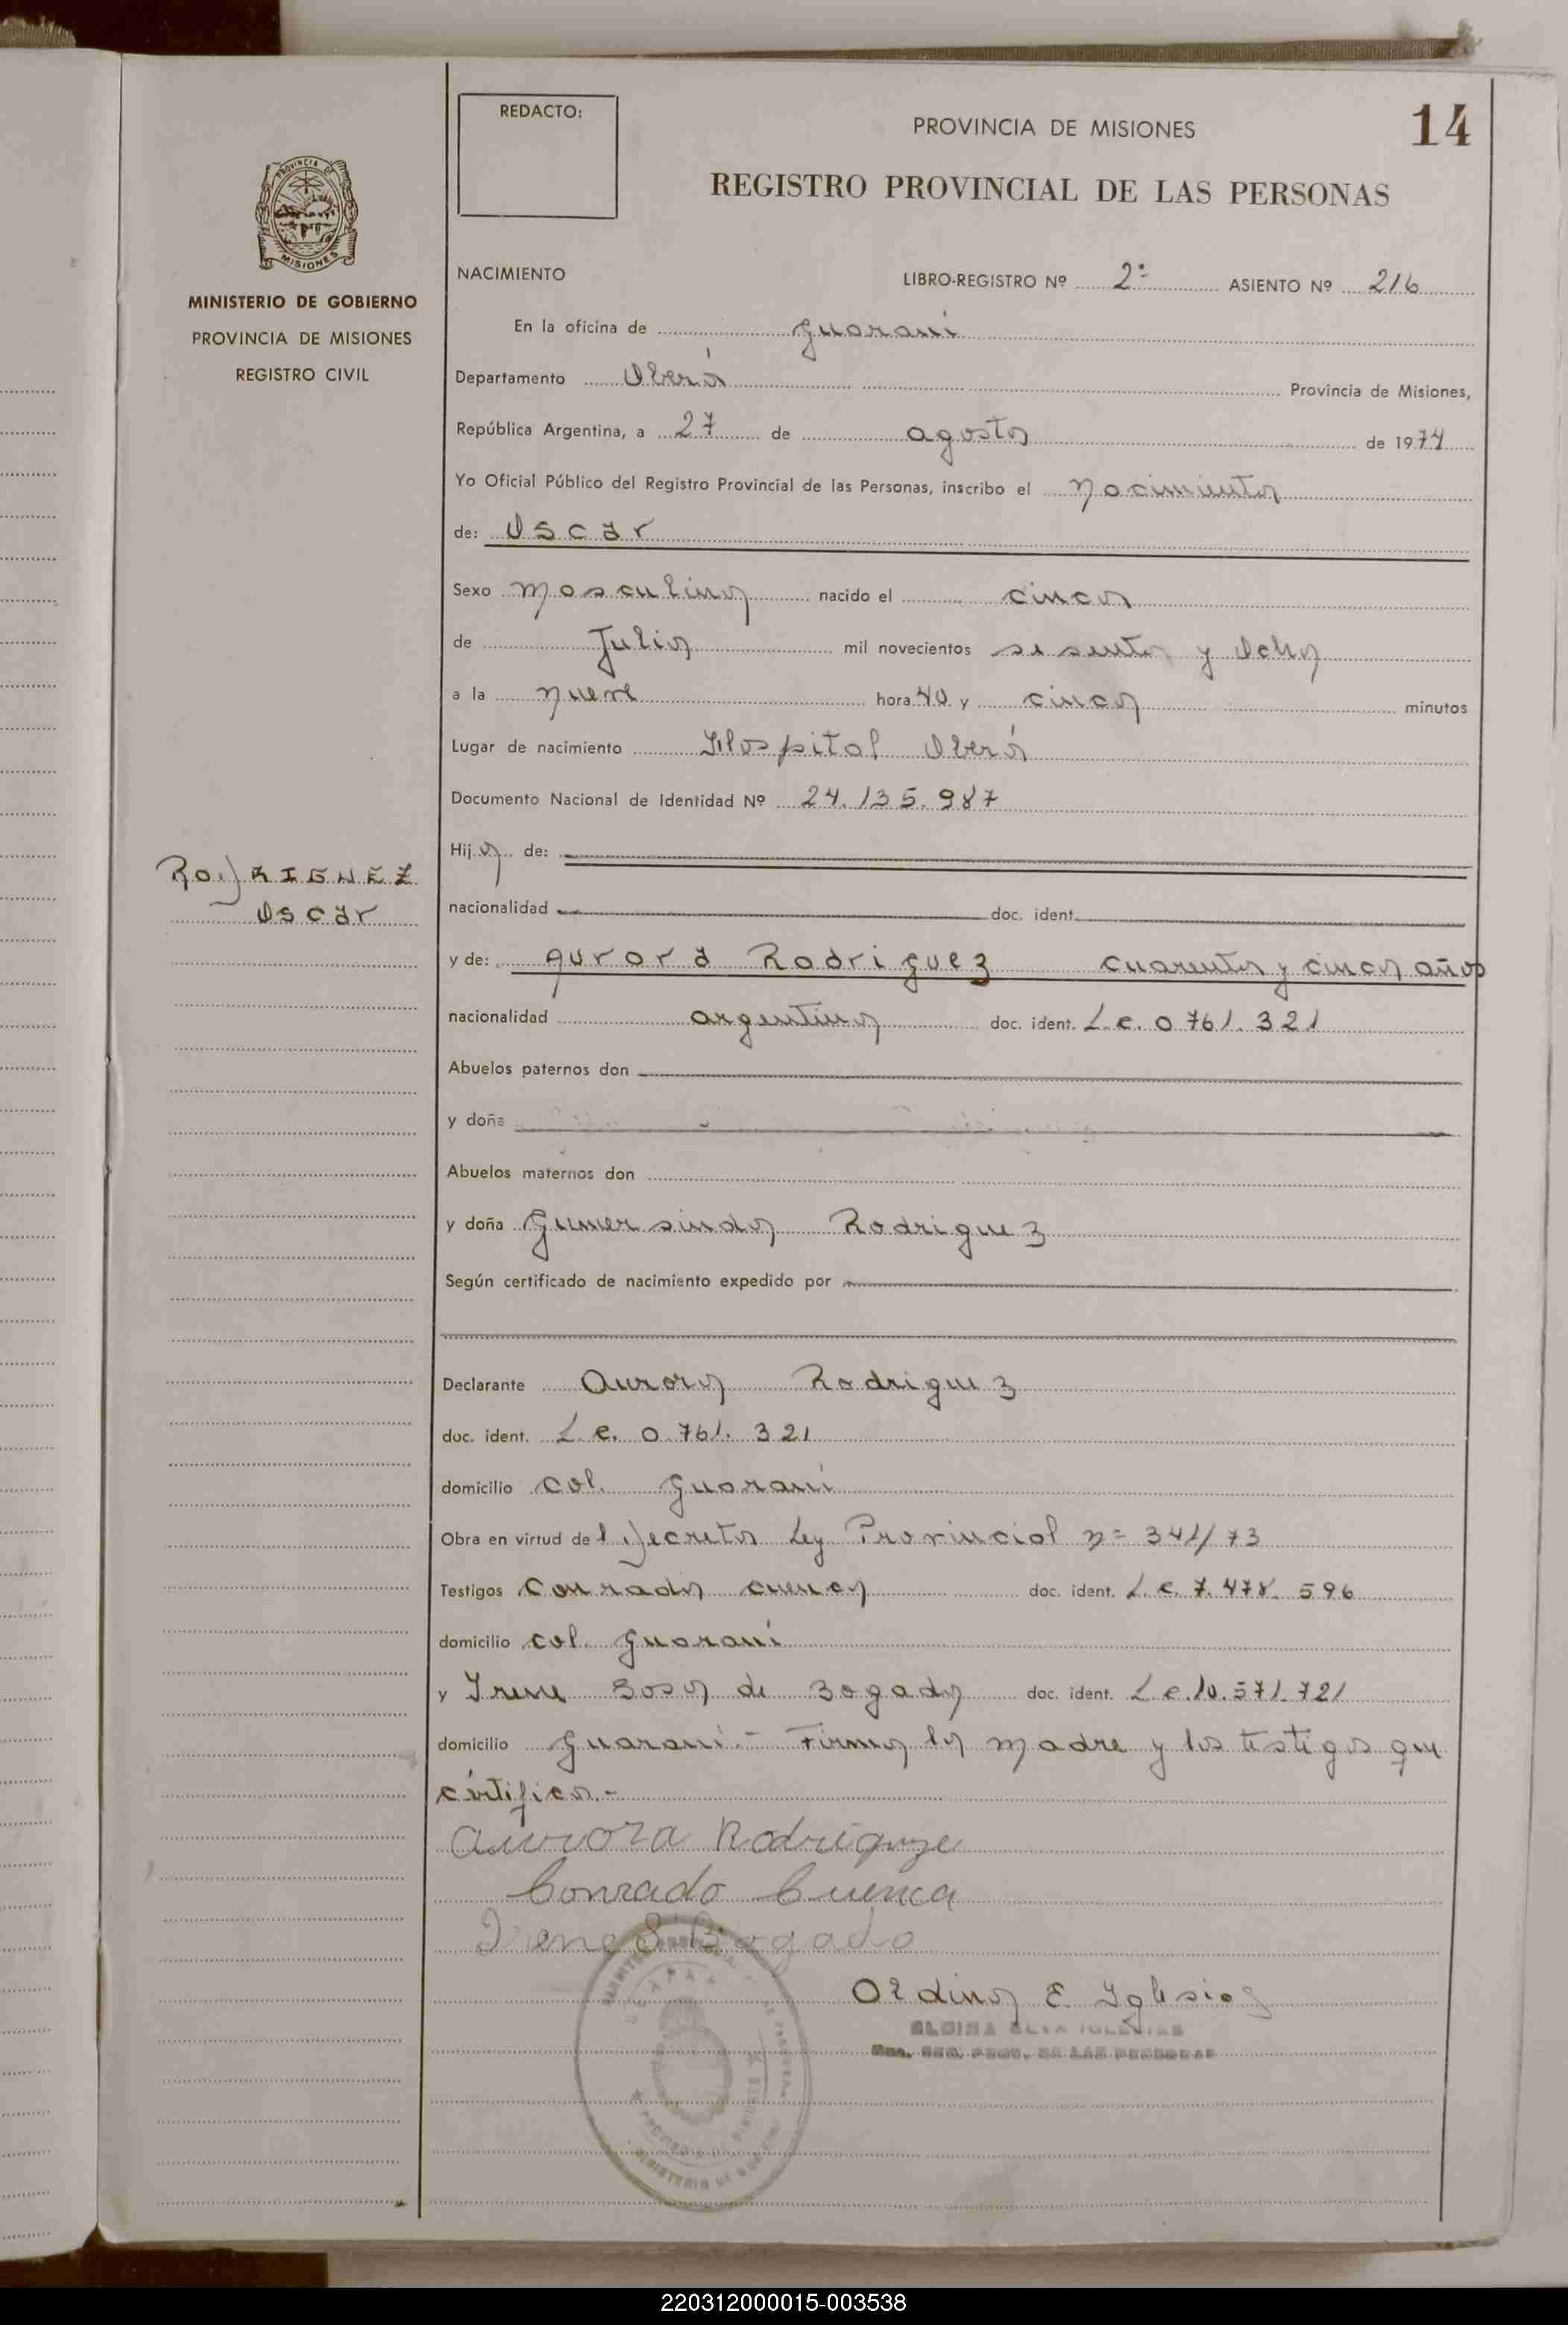 REDACTO:
PROVINCIA DE MISIONES
14
REGISTRO PROVINCIAL DE LAS PERSONAS
PROVINCIA DE
MISIONES
MINISTERIO DE GOBIERNO
PROVINCIA DE MISIONES
REGISTRO CIVIL
NACIMIENTO LIBRO-REGISTRO Nº 2º ASIENTO Nº 216
En la oficina de Guaraní
Departamento Oberá Provincia de Misiones,
República Argentina, a 27 de agosto de 1974
Yo Oficial Público del Registro Provincial de las Personas, inscribo el Nacimiento
de: Oscar
Sexo Masculino nacido el cinco
de Julio mil novecientos sesenta y Ocho
a la nueve hora 40 y cinco minutos
Lugar de nacimiento Hospital Oberá
Documento Nacional de Identidad Nº 24.135.987
Hijo de:
RodRIGUEZ
Oscar
nacionalidad doc. ident.
y de: Aurora Rodriguez cuarenta y cinco años
nacionalidad argentina doc. ident. L.C. 0761.321
Abuelos paternos don
y doña
Abuelos maternos don
y doña Gumersinda Rodriguez
Según certificado de nacimiento expedido por
Declarante Aurora Rodriguez
doc. ident. L.C. 0.761.321
domicilio Col. Guaraní
Obra en virtud del Decreto Ley Provincial nº 341/73
Testigos Conrado Cuenca doc. ident. L.E. 7.478.596
domicilio Col. Guaraní
y Irene Sosa de Bogado doc. ident. L.C. 10.571.721
domicilio Guaraní.- Firma la Madre y los testigos que
certifico.-
Aurora Rodriguze
Conrado Cuenca
Irene S Bogado
E. Iglesias
ELVA IGLESIAS
REG. PROV. DE LAS PERSONAS
220312000015-003538